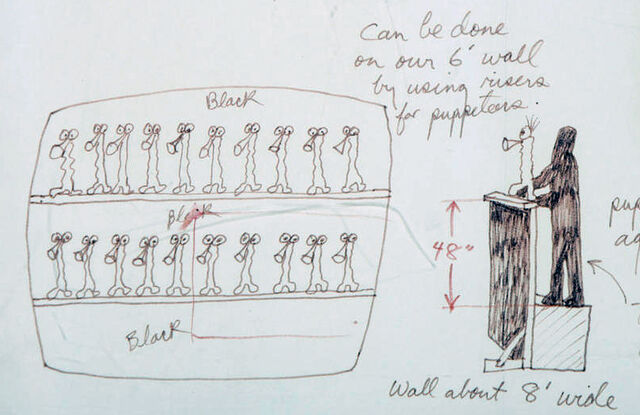 Can be done
on our 6' wall
by using risers
for puppeteers.
Black
Black
48"
Black
Wall about 8' wide